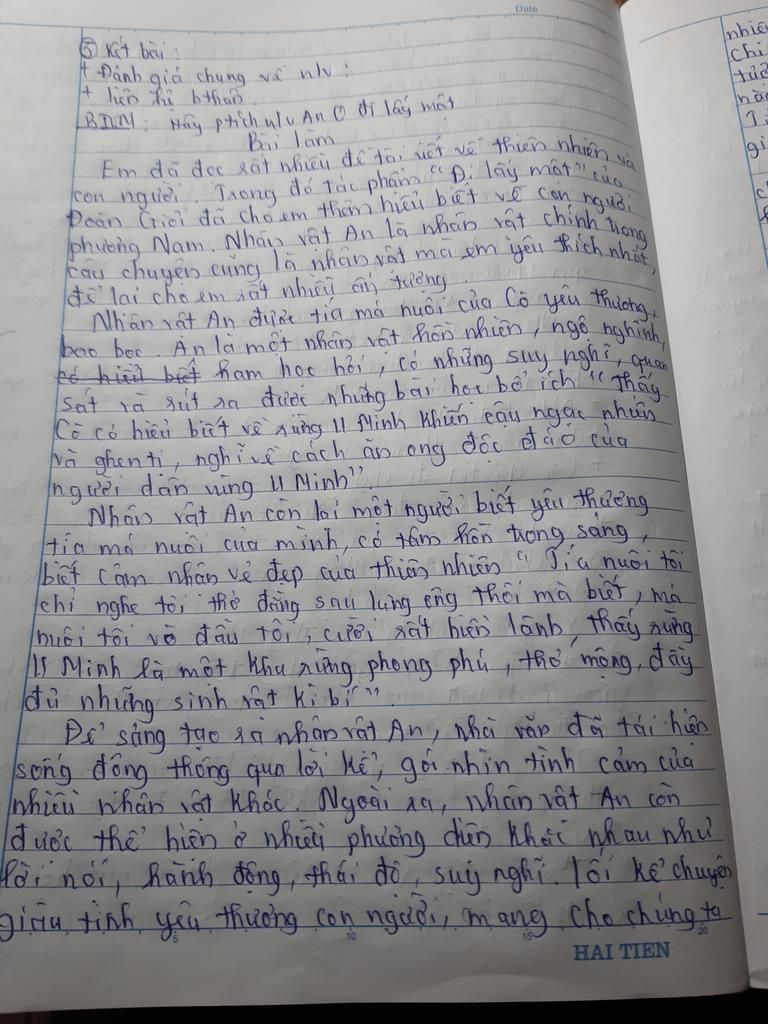 Date
③ Kết bài :
+ Đánh giá chung về n/v :
+ liên hệ bthân
BDM : Hãy ptích n/v An ① đi lấy mật
Bài làm
Em đã đọc rất nhiều đề tài viết về thiên nhiên và
con người. Trong đó tác phẩm "Đi lấy mật" của
Đoàn Giỏi đã cho em thêm hiểu biết về con người
phương Nam. Nhân vật An là nhân vật chính trong
câu chuyện cũng là nhân vật mà em yêu thích nhất,
để lại cho em rất nhiều ấn tượng.
Nhân vật An được tía má nuôi của Cò yêu thương,
bao bọc. An là một nhân vật hồn nhiên, ngộ nghĩnh,
có hiểu biết ham học hỏi, có những suy nghĩ, quan
sát và rút ra được những bài học bổ ích "thấy
Cò có hiểu biết về rừng U Minh khiến cậu ngạc nhiên
và ghen tị, nghĩ về cách ăn ong độc đáo của
người dân vùng U Minh".
Nhân vật An còn lại một người biết yêu thương
tía má nuôi của mình, có tâm hồn trong sáng,
biết cảm nhận vẻ đẹp của thiên nhiên " Tía nuôi tôi
chỉ nghe tôi thở đằng sau lưng ông thôi mà biết, má
nuôi tôi vò đầu tôi, cười rất hiền lành, thấy rừng
U Minh là một khu rừng phong phú, thơ mộng, đầy
đủ những sinh vật kì bí".
Để sáng tạo ra nhân vật An, nhà văn đã tái hiện
sống động thông qua lời kể, gói nhìn tình cảm của
nhiều nhân vật khác. Ngoài ra, nhân vật An còn
được thể hiện ở nhiều phương diện khác nhau như
lời nói, hành động, thái độ, suy nghĩ. lối kể chuyện
giàu tình yêu thương con người, mang cho chúng ta
5 10 15 20
HAI TIEN
nhiê
chi
tưở
nà
gi